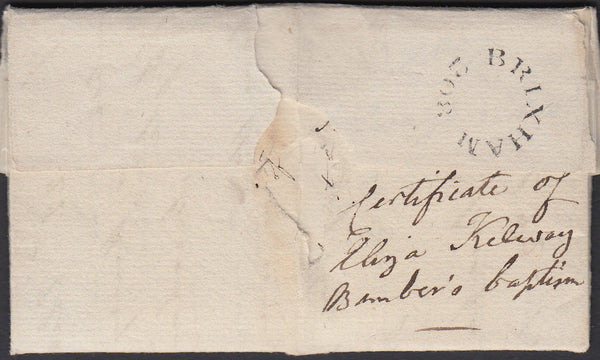 BRIXHAM 208
Certificate of
Eliza Kelway
Bamber's baptism